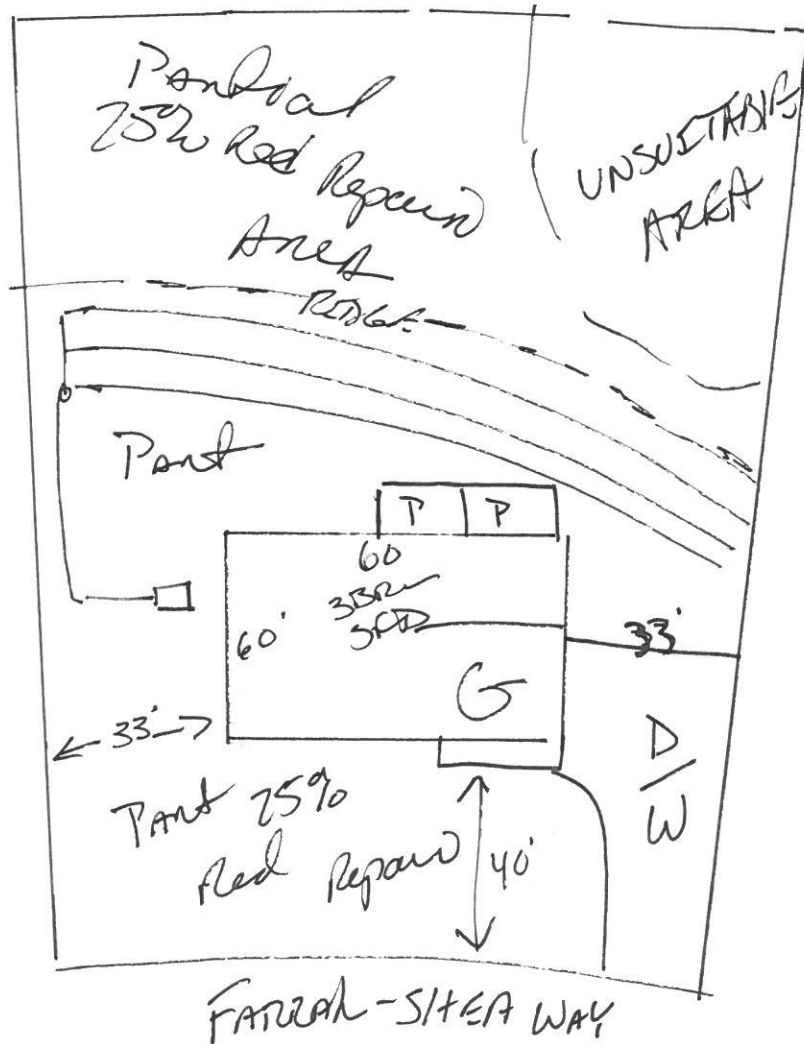 Partial
25% Red Repair
Area
UNSUITABLE
AREA
RIDGE
Part
P P
60
3BR
SFD
60'
33'
G
33'
D/W
Part 25%
Red Repair
40'
FARRAR-SHEA WAY